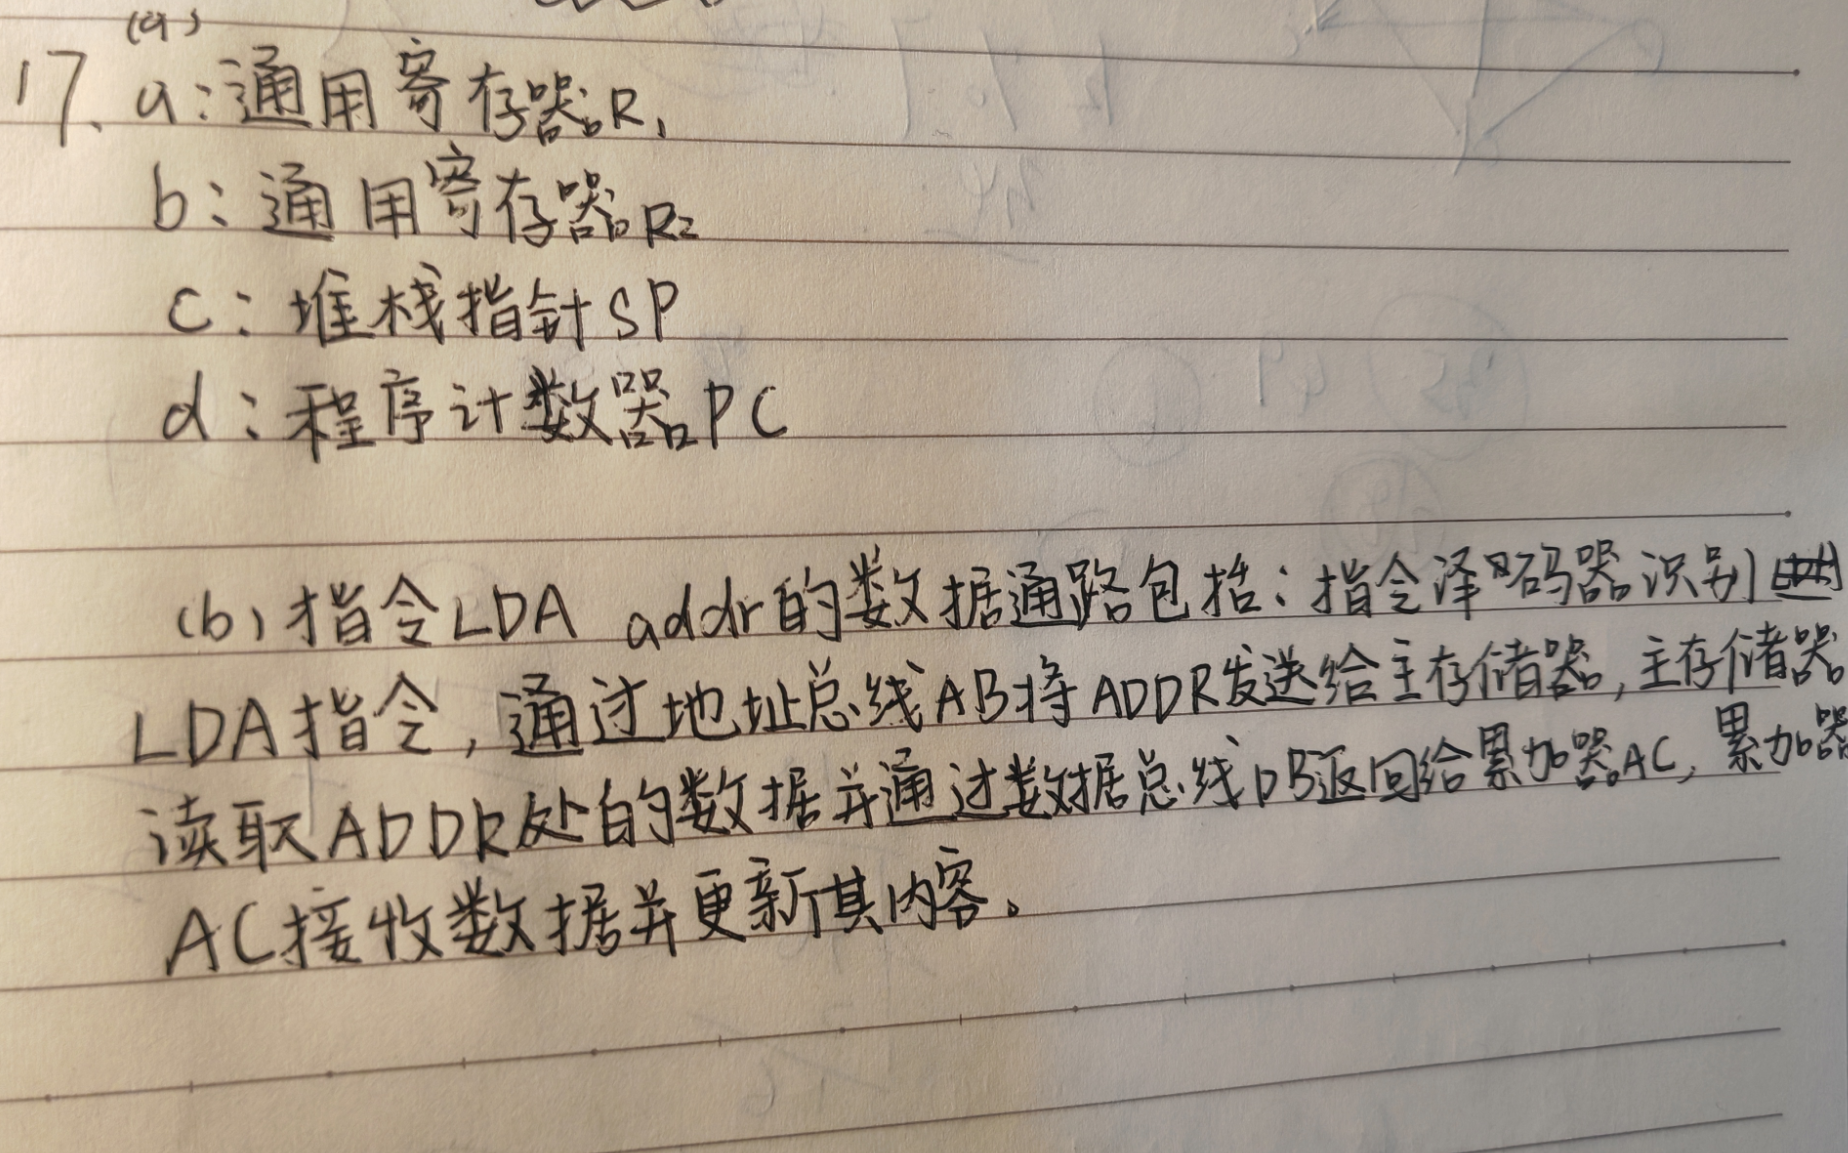 (a)
17. a:通用寄存器R1
b:通用寄存器R2
c:堆栈指针SP
d:程序计数器PC
(b)指令LDA addr的数据通路包括:指令译码器识别
LDA指令,通过地址总线AB将ADDR发送给主存储器,主存储器
读取ADDR处的数据并通过数据总线DB返回给累加器AC,累加器
AC接收数据并更新其内容。